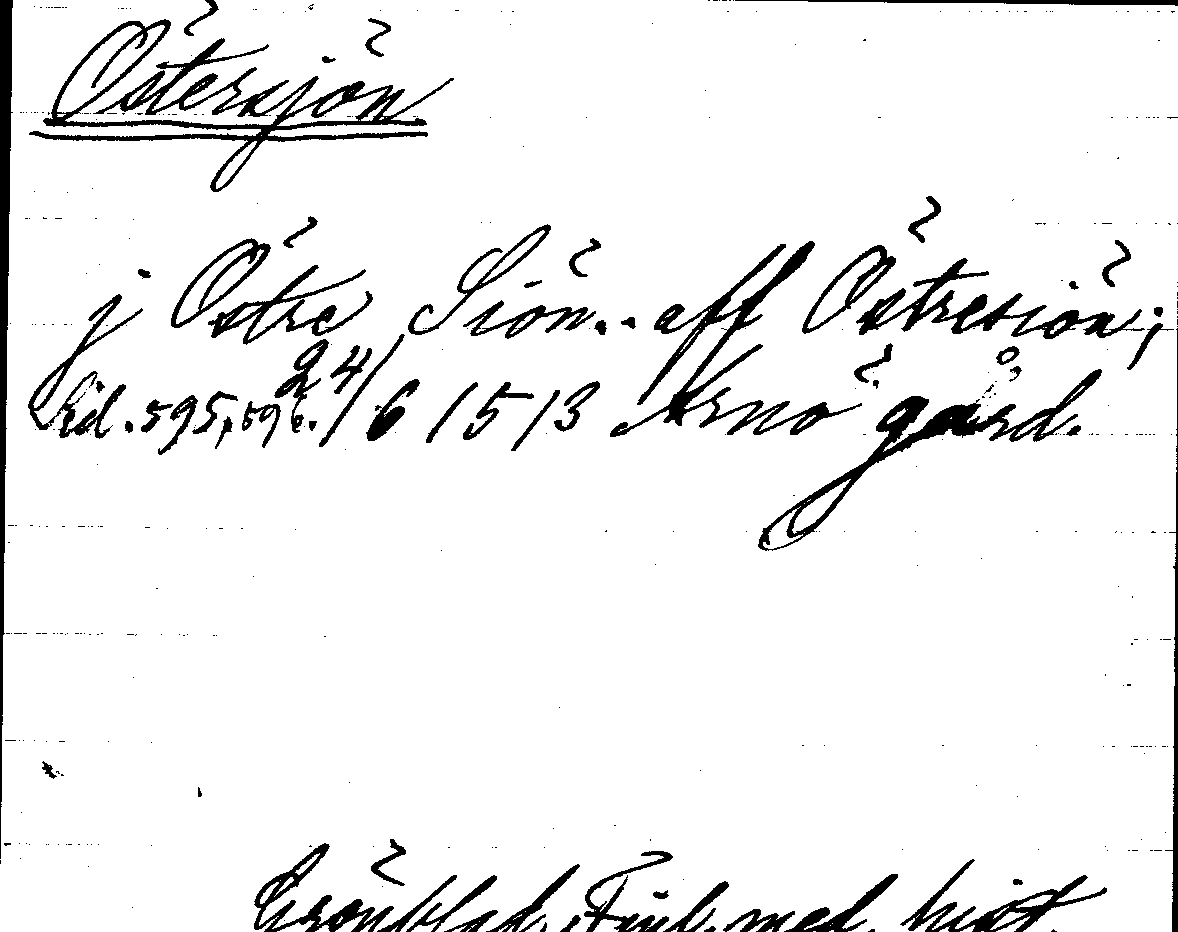 Östersjön
j Östre Siön.. aff Östresiön;
Sid. 595, 596. 24/6 1513 Arnö gård.
Grönblad, Finl. med. hist.